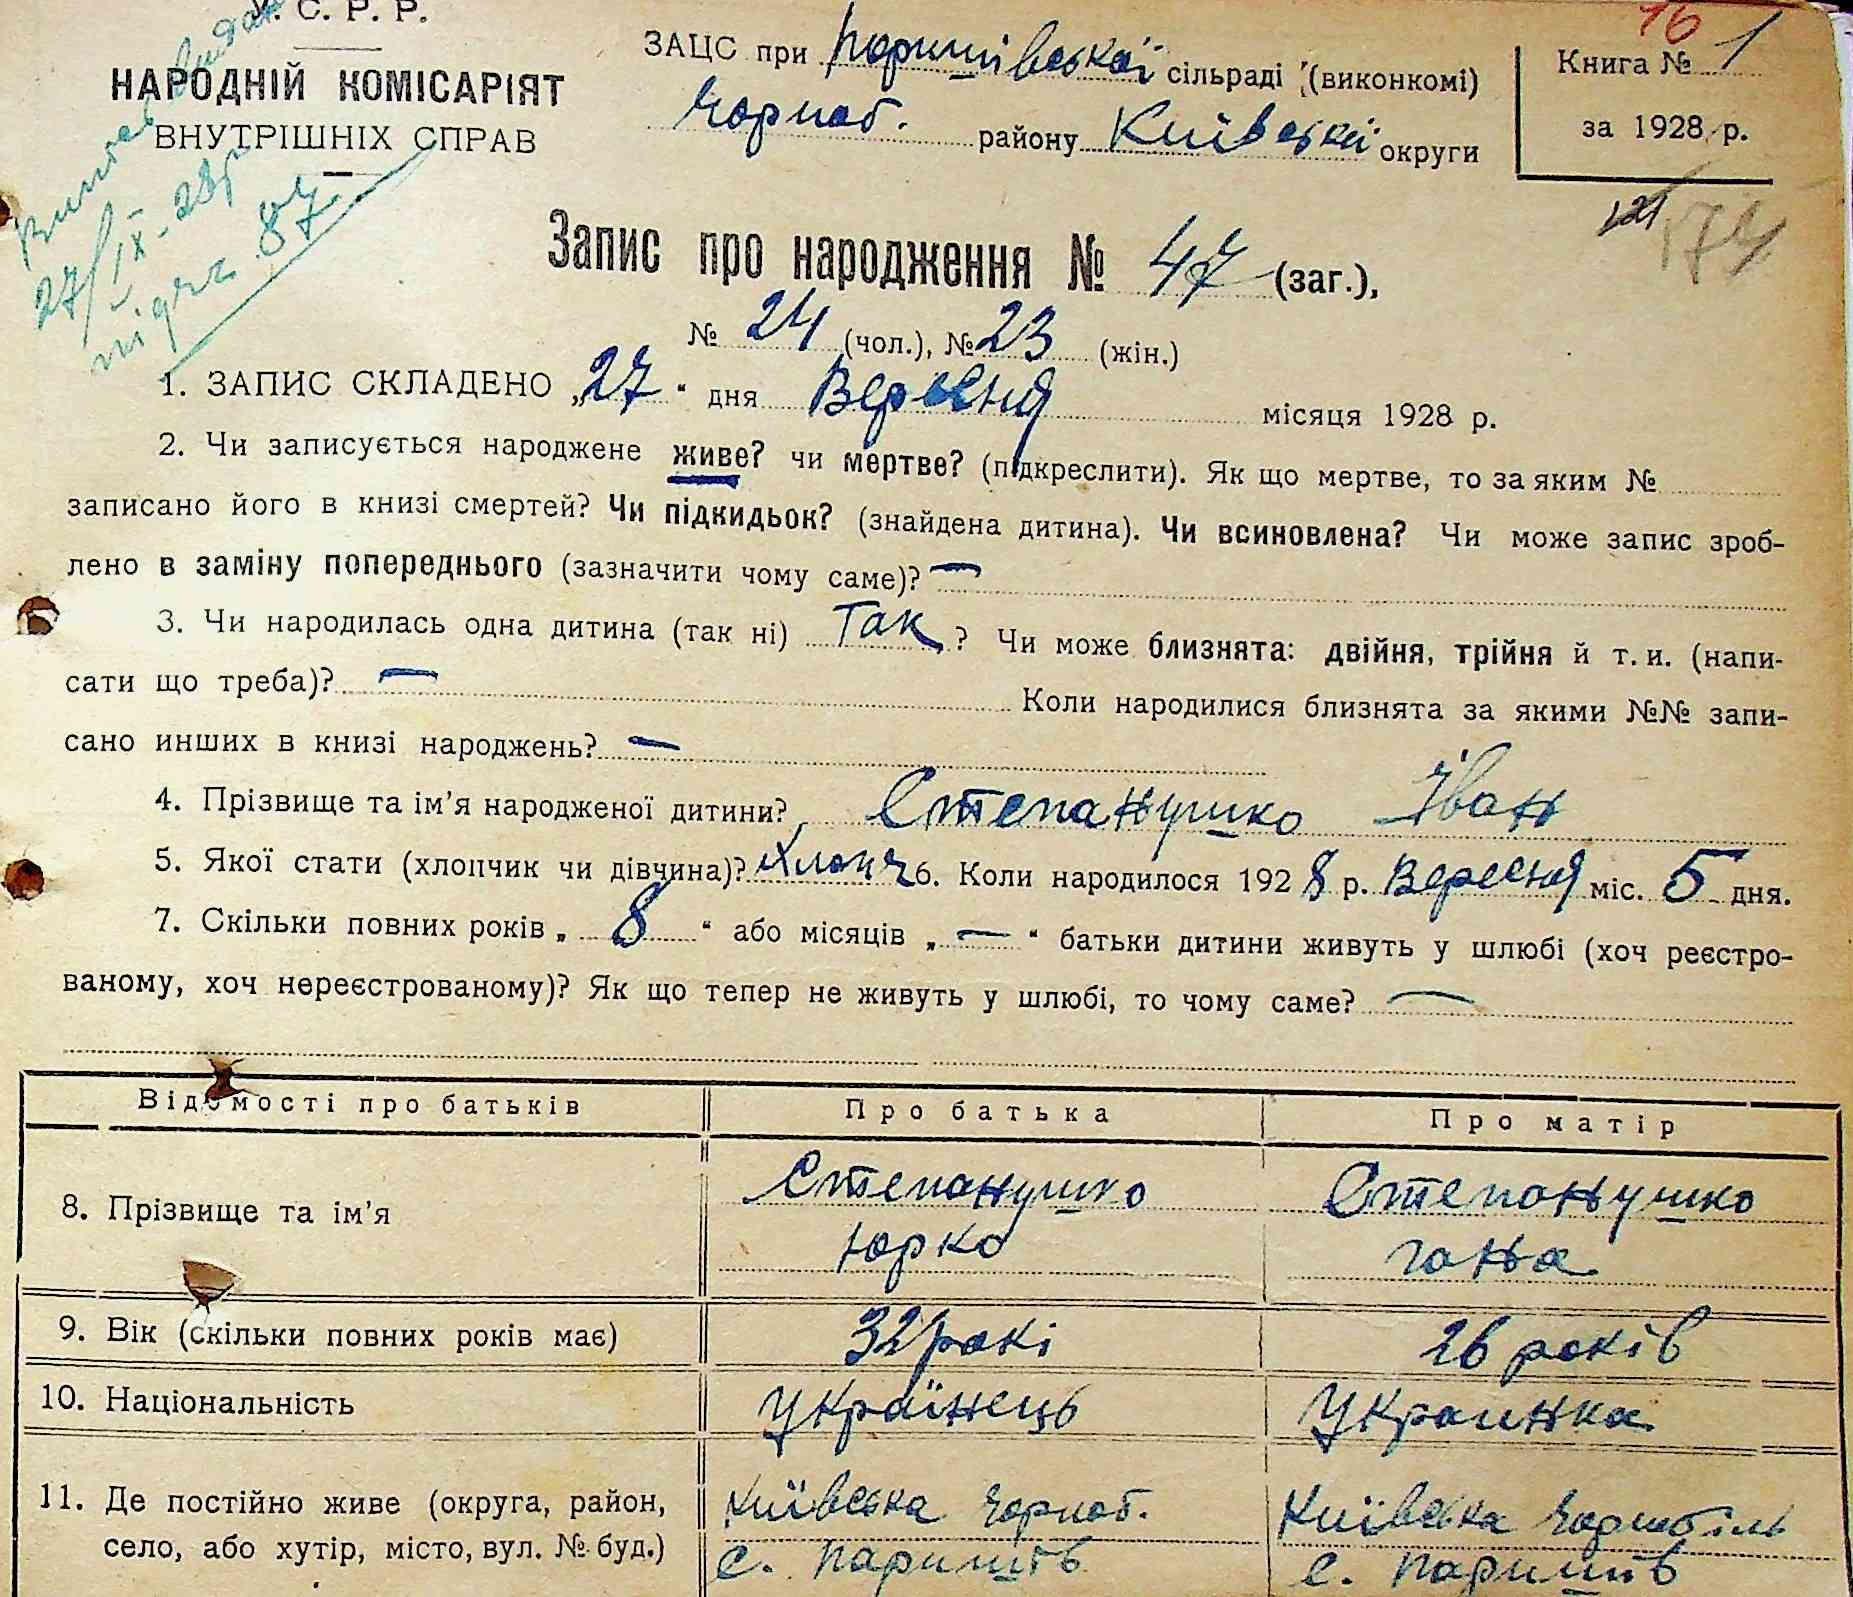 У. С. Р. Р.
НАРОДНІЙ КОМІСАРІЯТ
ВНУТРІШНІХ СПРАВ
Витяг видан
27/IX-28р
підчг. 87
ЗАЦС при Паришівській сільраді (виконкомі)
Чорноб. району Київської округи
16
Книга № 1
за 1928 р.
121
174
Запис про народження № 47 (заг.),
№ 24 (чол.), № 23 (жін.)
1. ЗАПИС СКЛАДЕНО „27“ дня Вересня місяця 1928 р.
2. Чи записується народжене живе? чи мертве? (підкреслити). Як що мертве, то за яким №
записано його в книзі смертей? Чи підкидьок? (знайдена дитина). Чи всиновлена? Чи може запис зроб-
лено в заміну попереднього (зазначити чому саме)? —
3. Чи народилась одна дитина (так ні) Так ? Чи може близнята: двійня, трійня й т. и. (напи-
сати що треба)? — Коли народилися близнята за якими №№ запи-
сано инших в книзі народжень? —
4. Прізвище та ім'я народженої дитини? Степанушко Іван
5. Якої стати (хлопчик чи дівчина)? Хлопч 6. Коли народилося 1928 р. Вересня міс. 5 дня.
7. Скільки повних років „ 8 “ або місяців „ — “ батьки дитини живуть у шлюбі (хоч реєстро-
ваному, хоч нереєстрованому)? Як що тепер не живуть у шлюбі, то чому саме? —
Відомості про батьків Про батька Про матір
8. Прізвище та ім'я Степанушко Юрко Степанушко Ганя
9. Вік (скільки повних років має) 32 рокі 26 років
10. Національність Українець Украинка
11. Де постійно живе (округа, район, Київська Чорноб. Київська Чорнобіль
село, або хутір, місто, вул. № буд.) с. Паришів с. Паришів